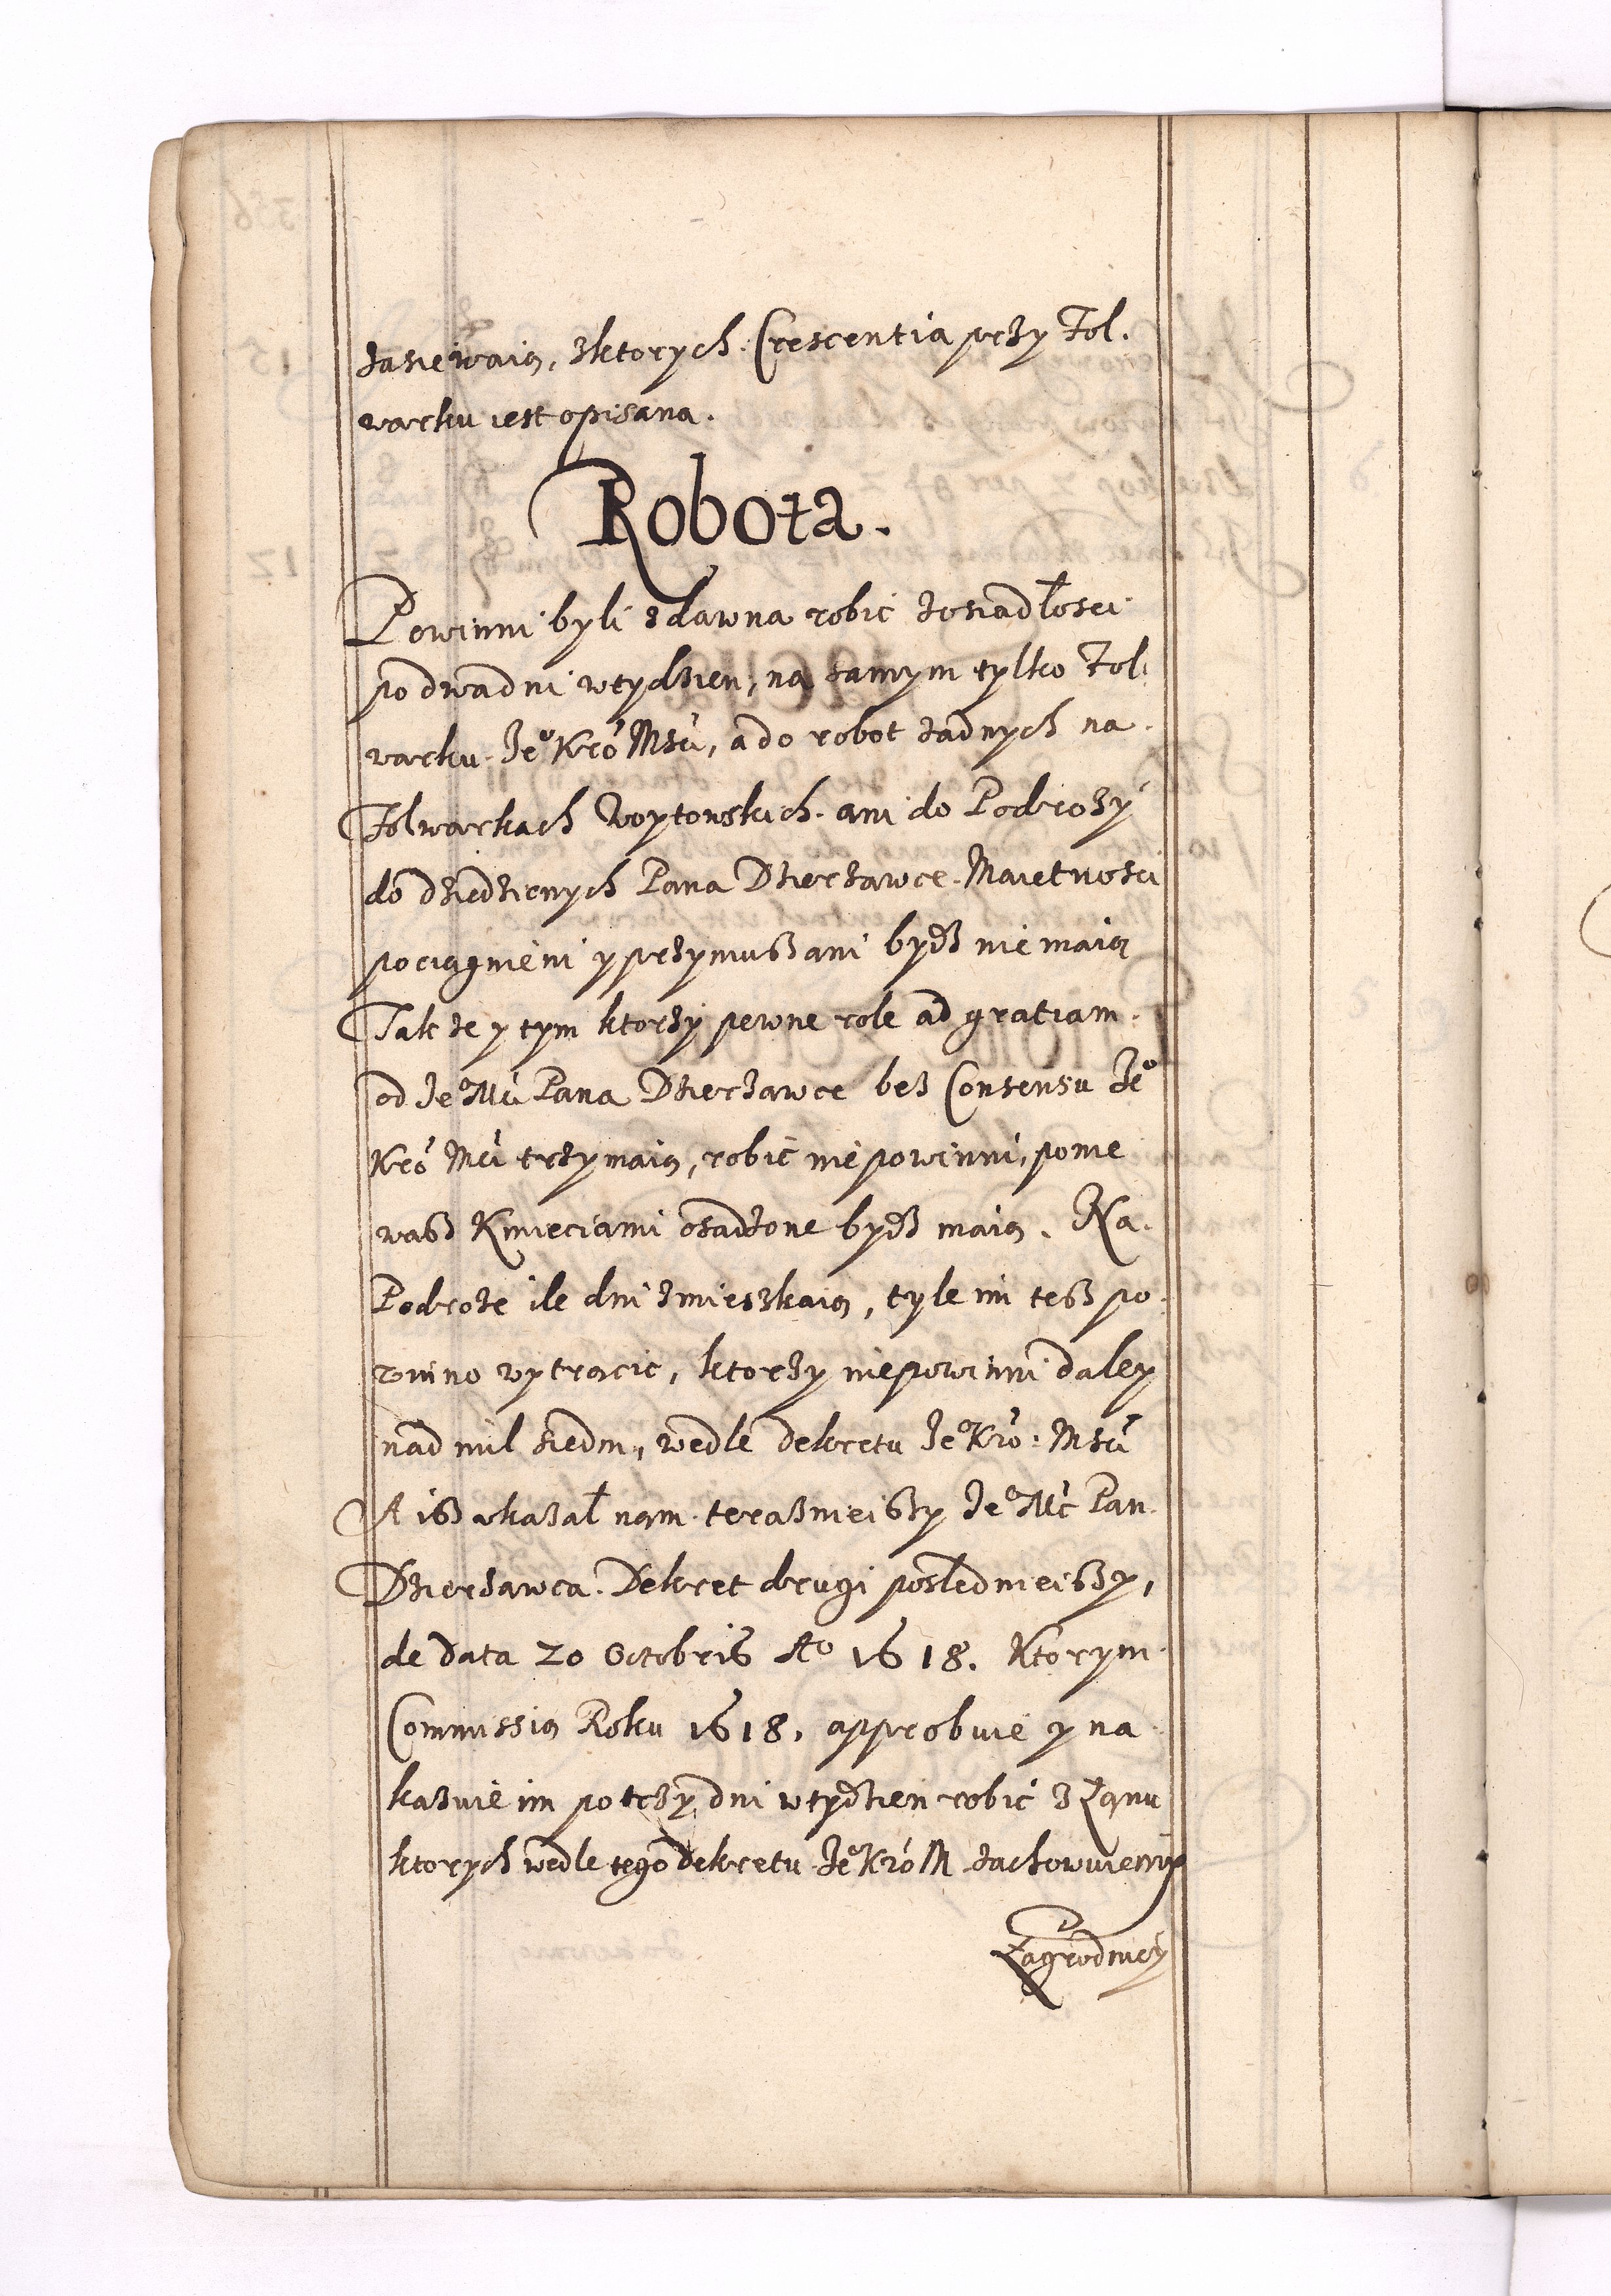 zasiewaią, zktorych Crescentia przy Fol.
warku iest opisana.
Robota.
Powinni byli zdawna robic zosiadłosci
po dwa dni wtydzien, na samym tylko Fol
warku Je° Kró Mści, a do robot żadnych na
Folwarkach Woytowskich ani do Podroży
do dziedzicnych Pana Dzierzawce Maietnosci
pociągnieni y przymuszani bydź nie maią
Takze y tym ktorzy pewne role ad gratiam
od Je° Mći Pana Dzierzawce bez Consensu Je°
Kró Mći trzymaią, robic niepowinni, ponie
wasz Kmieciami osadzone bydź maią. Na
Podroze ile dni zmieszkaią, tyle im tesz po
winno wytracic, ktorzy niepowinni daley
nad mil siedm, wedle dekretu Je° Kró: Mści
A isz ukazał nam teraznieiszy Je° Mć Pan
Dzierzawca Dekret drugi poslednieiszy,
de data 20 Octobris A° 1618. Ktorym
Commissią Roku 1618. approbuie y na
kazuie im po trzy dni wtydzien robić z Łanu
ktorych wedle tego dekretu Je° Kró M zachowuiemy
Zagrodnicy